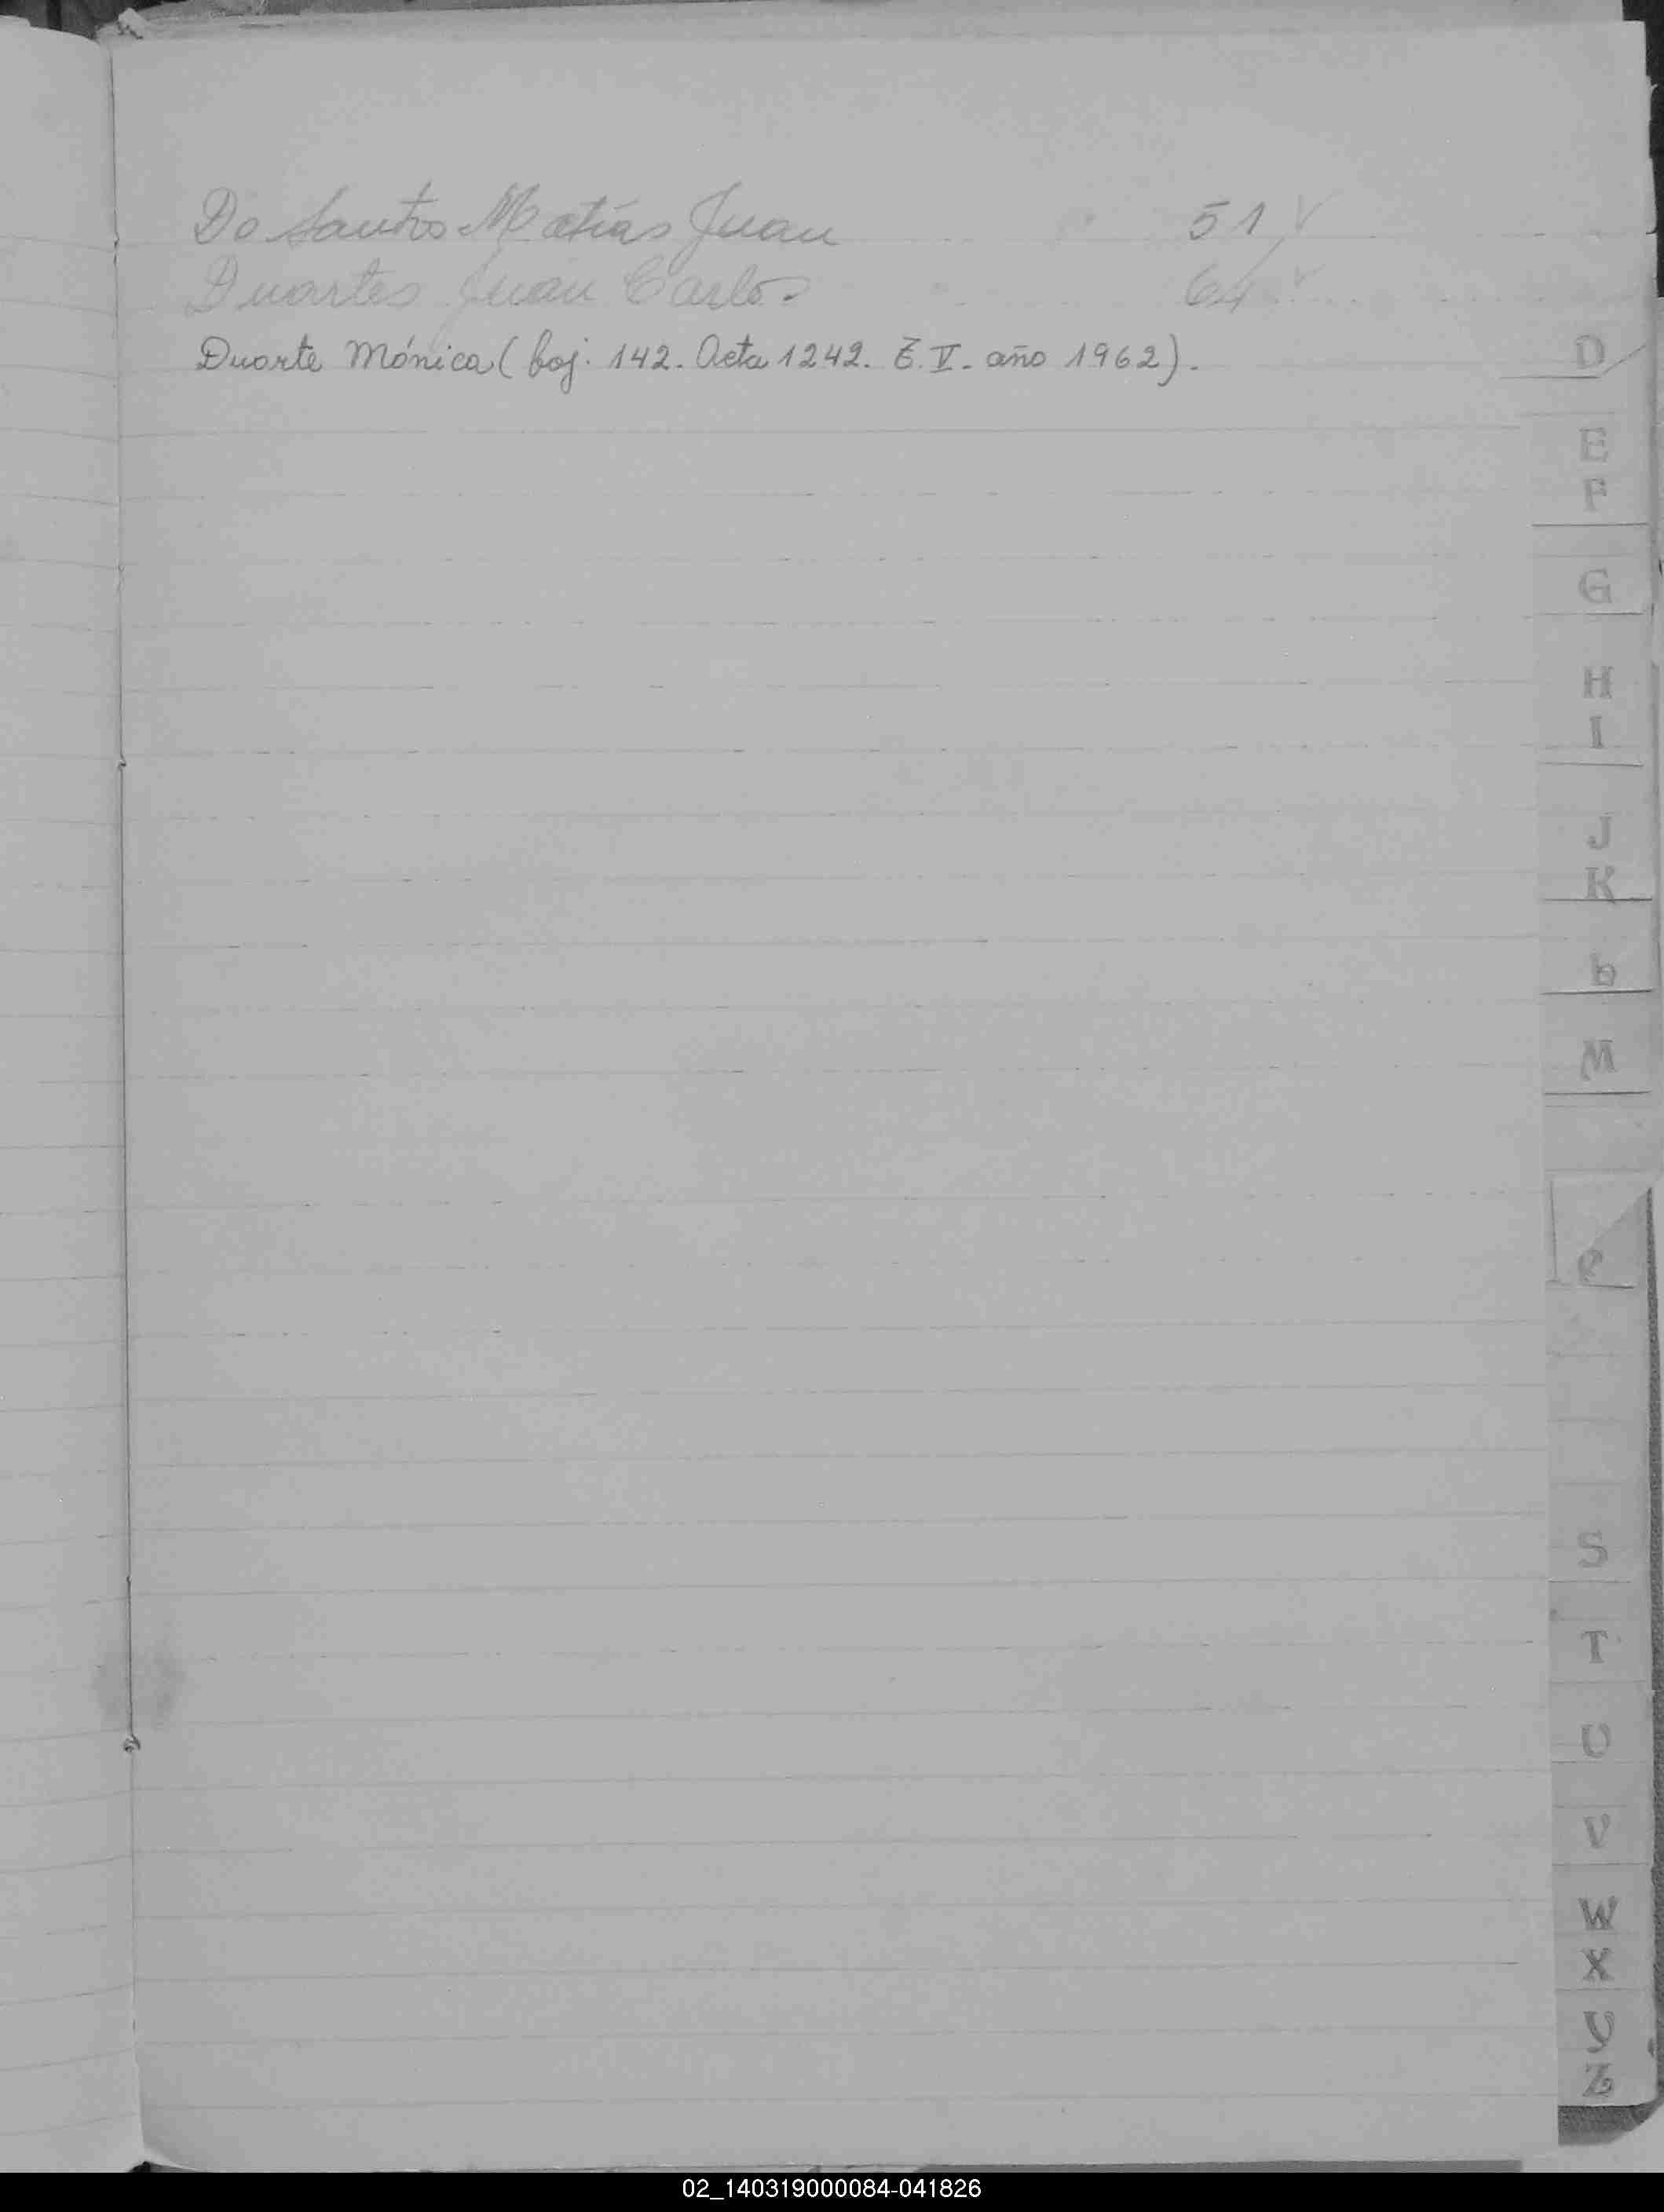 Do Santos Matías Juan 51 V
Duartes Juan Carlos 64 V
Duarte Mónica (foj. 142. Acta 1242. T. V. año 1962).
D
E
F
G
H
I
J
K
M
S
T
U
V
W
X
Y
Z
02_140319000084-041826